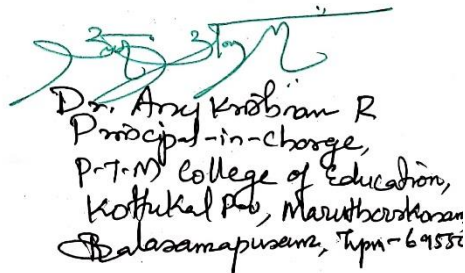 Dr. Anoj Krishnan R
Principal-in-Charge,
P.T.M College of Education,
Kottukal P.O, Maruthoorkonam,
Balaramapuram, Tvpm-69550